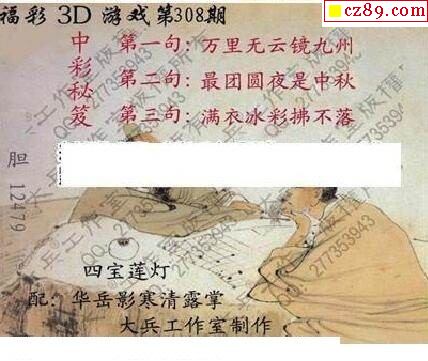 cz89.com
福彩3D游戏第308期
中彩秘笈
第一句:万里无云镜九州
第二句:最团圆夜是中秋
第三句:满衣冰彩拂不落
胆 12479
四宝莲灯
配:华岳影寒清露掌
大兵工作室制作
QQ:277353943